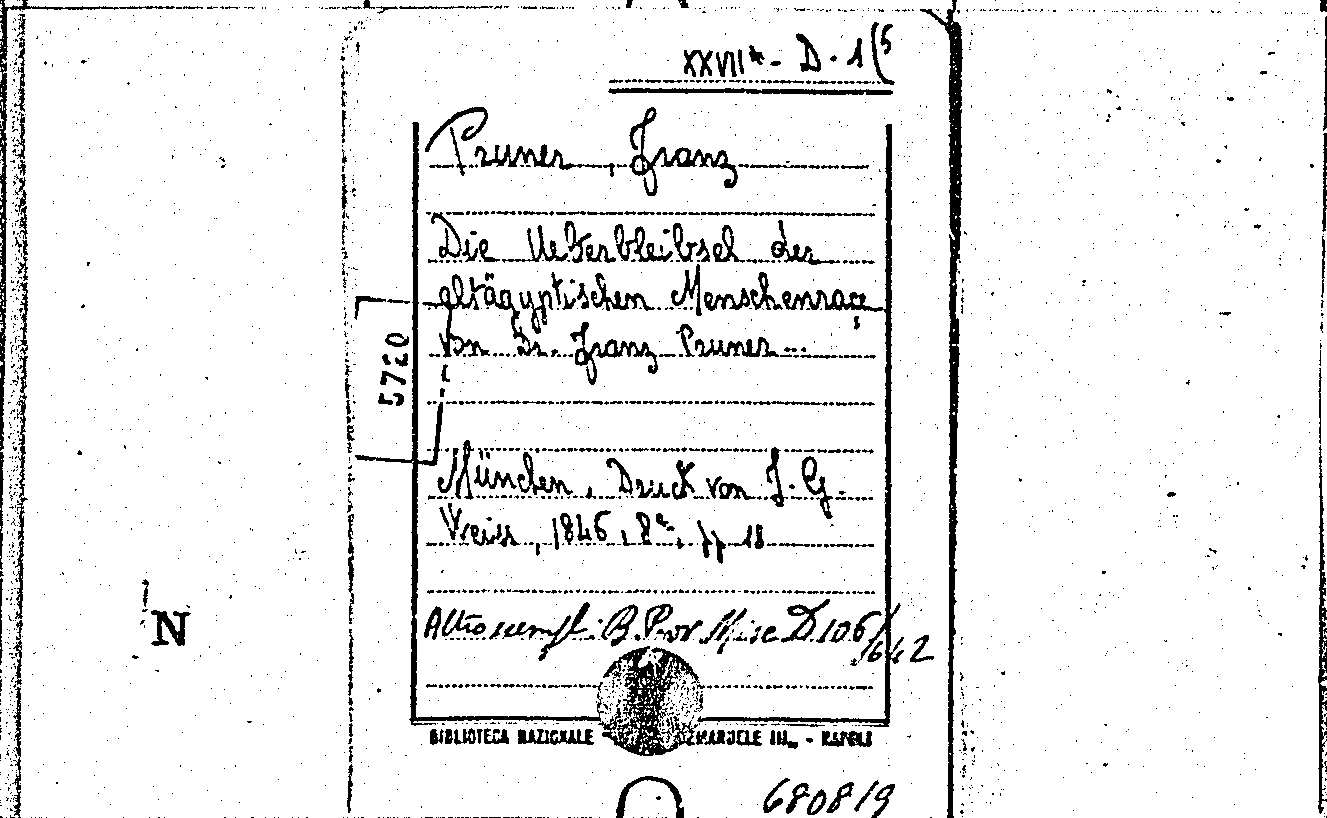 XXVII* - D - 1(5
Pruner, Franz
Die Ueberbleibsel der
altägyptischen Menschenrace
von Dr. Franz Pruner ...
5720
München, Druck von J. G.
Weiss, 1846, 8°, pp 18
N
Altro esempl: B. Prov. Misc D 106/
642
BIBLIOTECA NAZIONALE - EMANUELE III„ - NAPOLI
680819